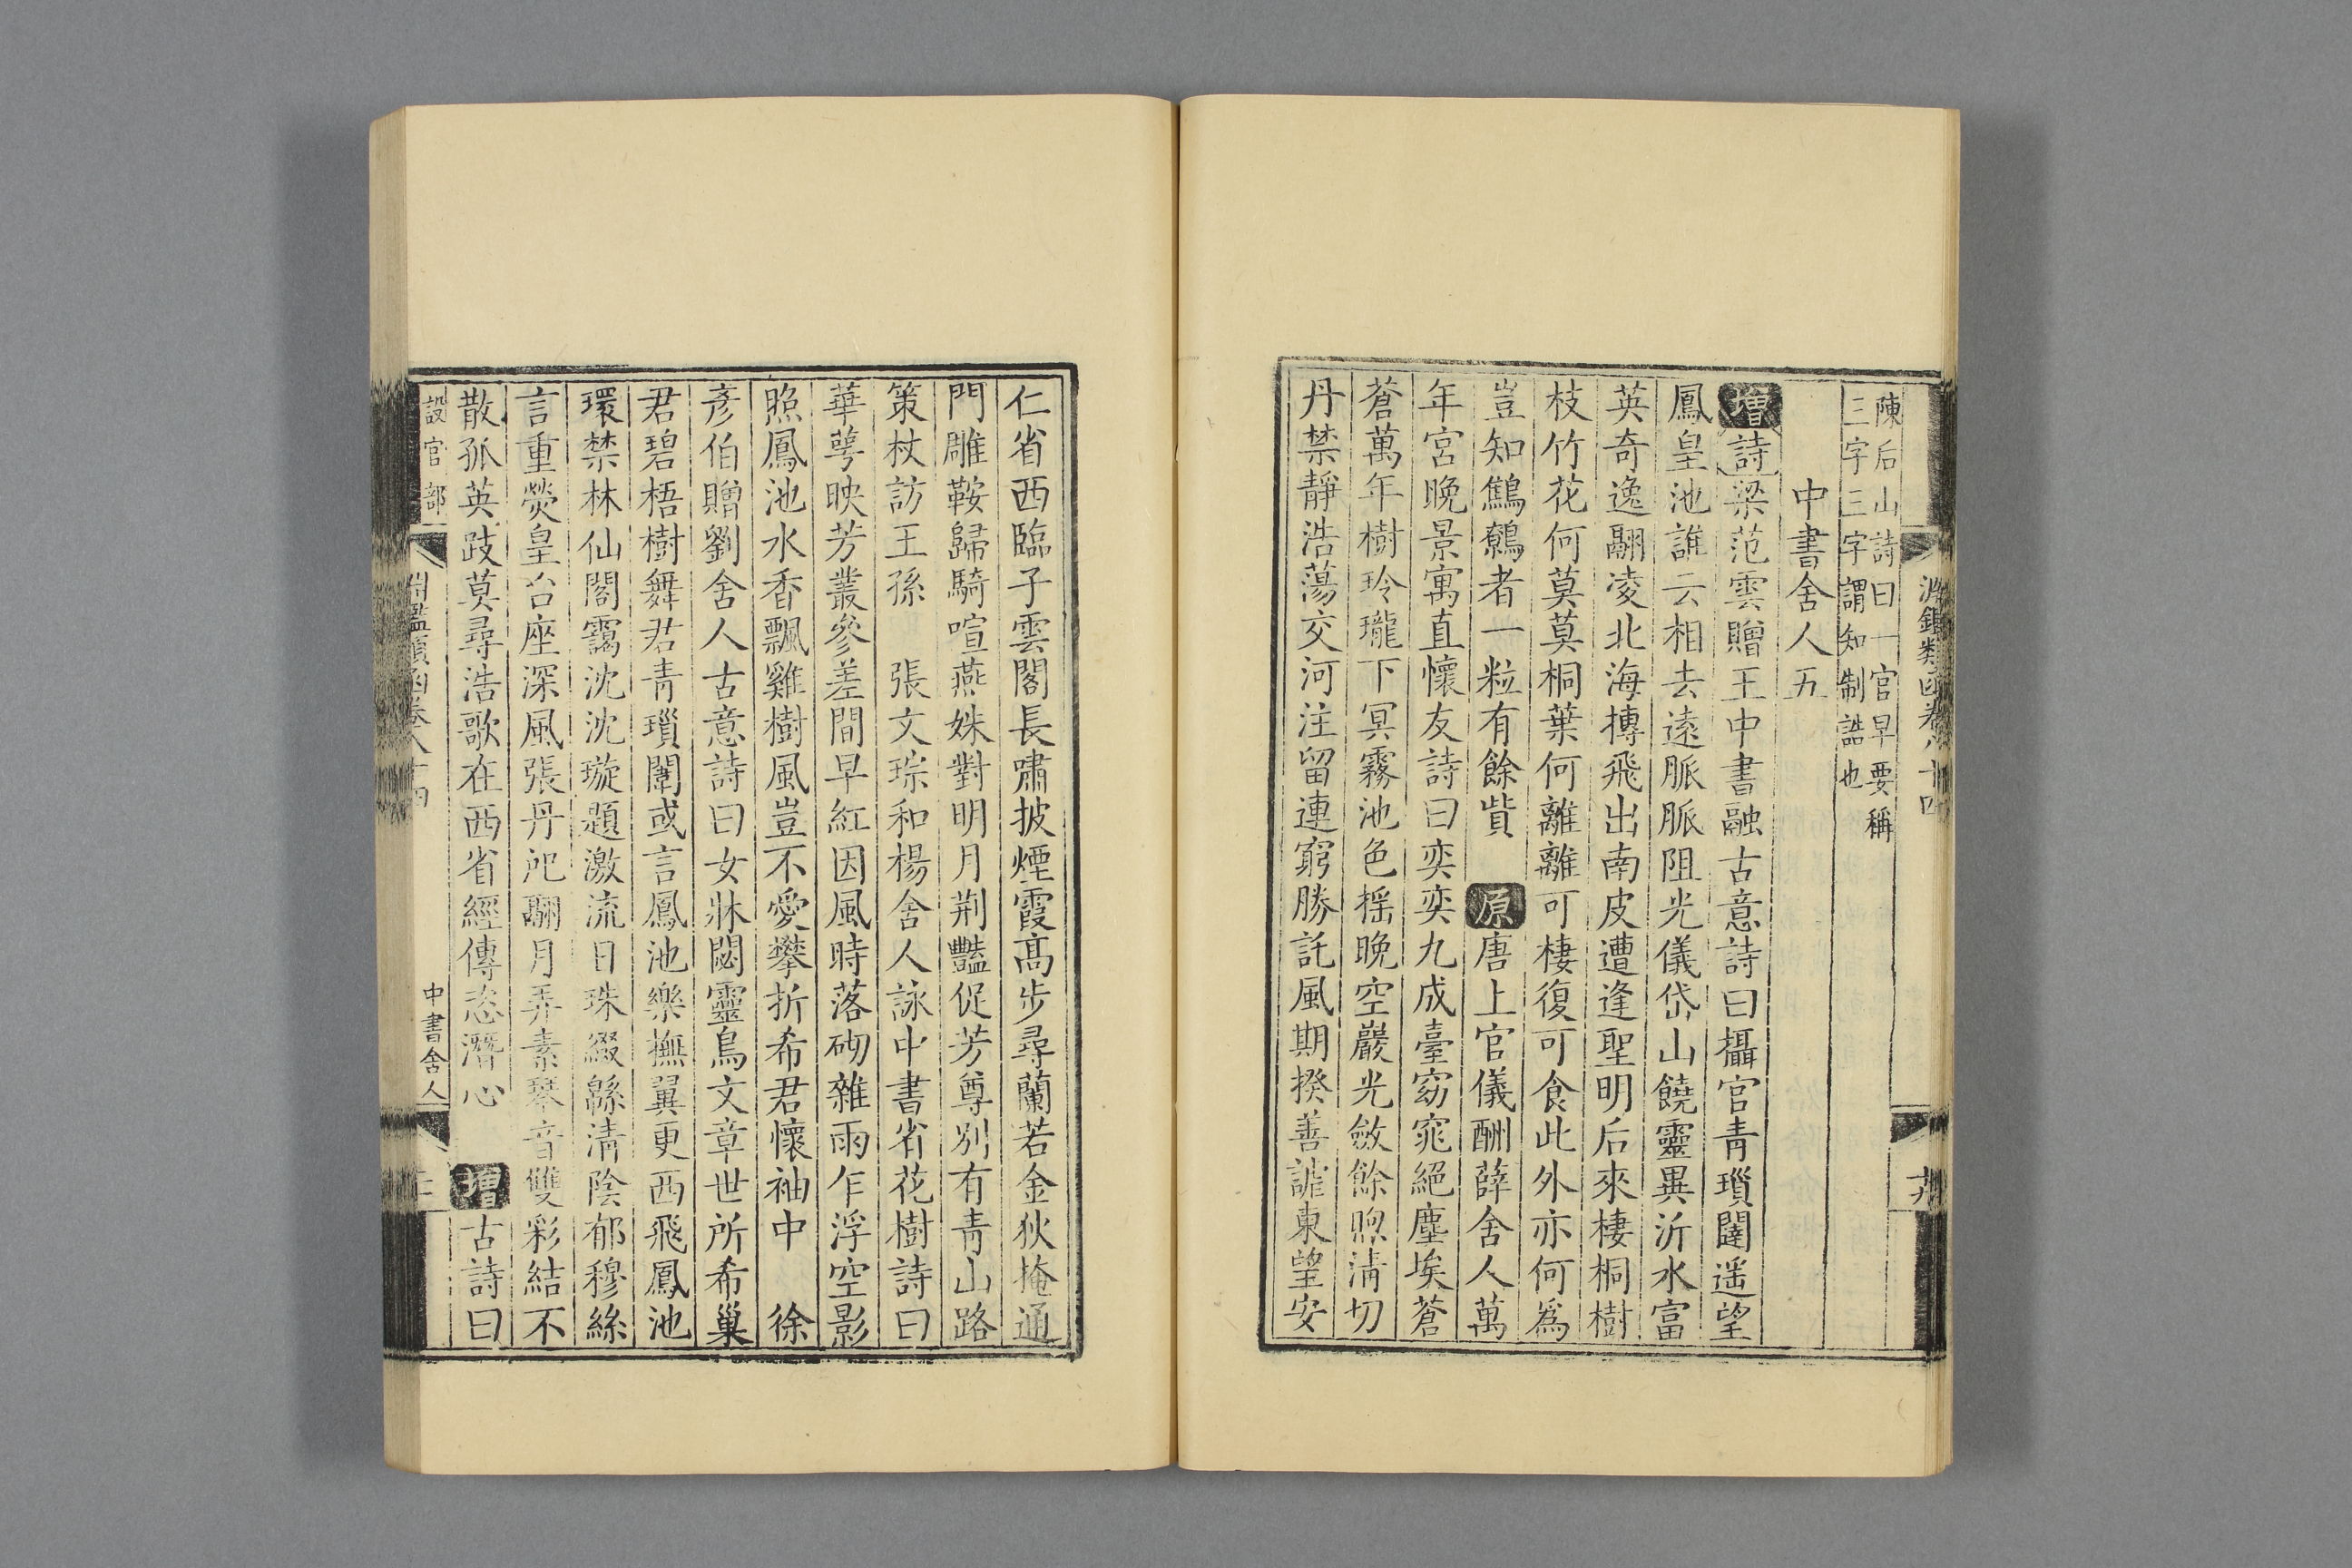 淵鑑類函卷八十四
陳后山詩曰一官早要稱
三字三字謂知制誥也
中書舍人五
增詩梁范雲贈王中書融古意詩曰攝官青瑣闥遥望
鳳皇池誰云相去遠脈脈阻光儀岱山饒靈異沂水富
英奇逸翮凌北海摶飛出南皮遭逢聖明后來棲桐樹
枝竹花何莫莫桐葉何離離可棲復可食此外亦何爲
豈知鷦鷯者一粒有餘貲 原唐上官儀酬薛舍人萬
年宮晚景寓直懷友詩曰奕奕九成臺窈窕絕塵埃蒼
蒼萬年樹玲瓏下冥霧池色摇晚空巖光斂餘煦淸切
丹禁靜浩蕩文河注留連窮勝託風期揆善謔東望安
仁省西臨子雲閣長嘯披煙霞高步尋蘭若金狄掩通
門雕鞍歸騎喧燕姝對明月荆豔促芳尊別有青山路
策杖訪王孫 張文琮和楊舍人詠中書省花樹詩曰
華萼映芳叢參差間早紅因風時落砌雜雨乍浮空影
照鳳池水香飄雞樹風豈不愛攀折希君懷袖中 徐
彥伯贈劉舍人古意詩曰女牀閟靈鳥文章世所希巢
君碧梧樹舞君青瑣闈或言鳳池樂撫翼更西飛鳳池
環禁林仙閣靄沈沈璇題激流日珠綴緜淸陰郁穆絲
言重熒皇台座深風張丹戺翮月弄素琴音雙彩結不
散孤英跂莫尋浩歌在西省經傳恣潛心 增古詩曰
設官部
淵鑑類函卷八十四
中書舍人